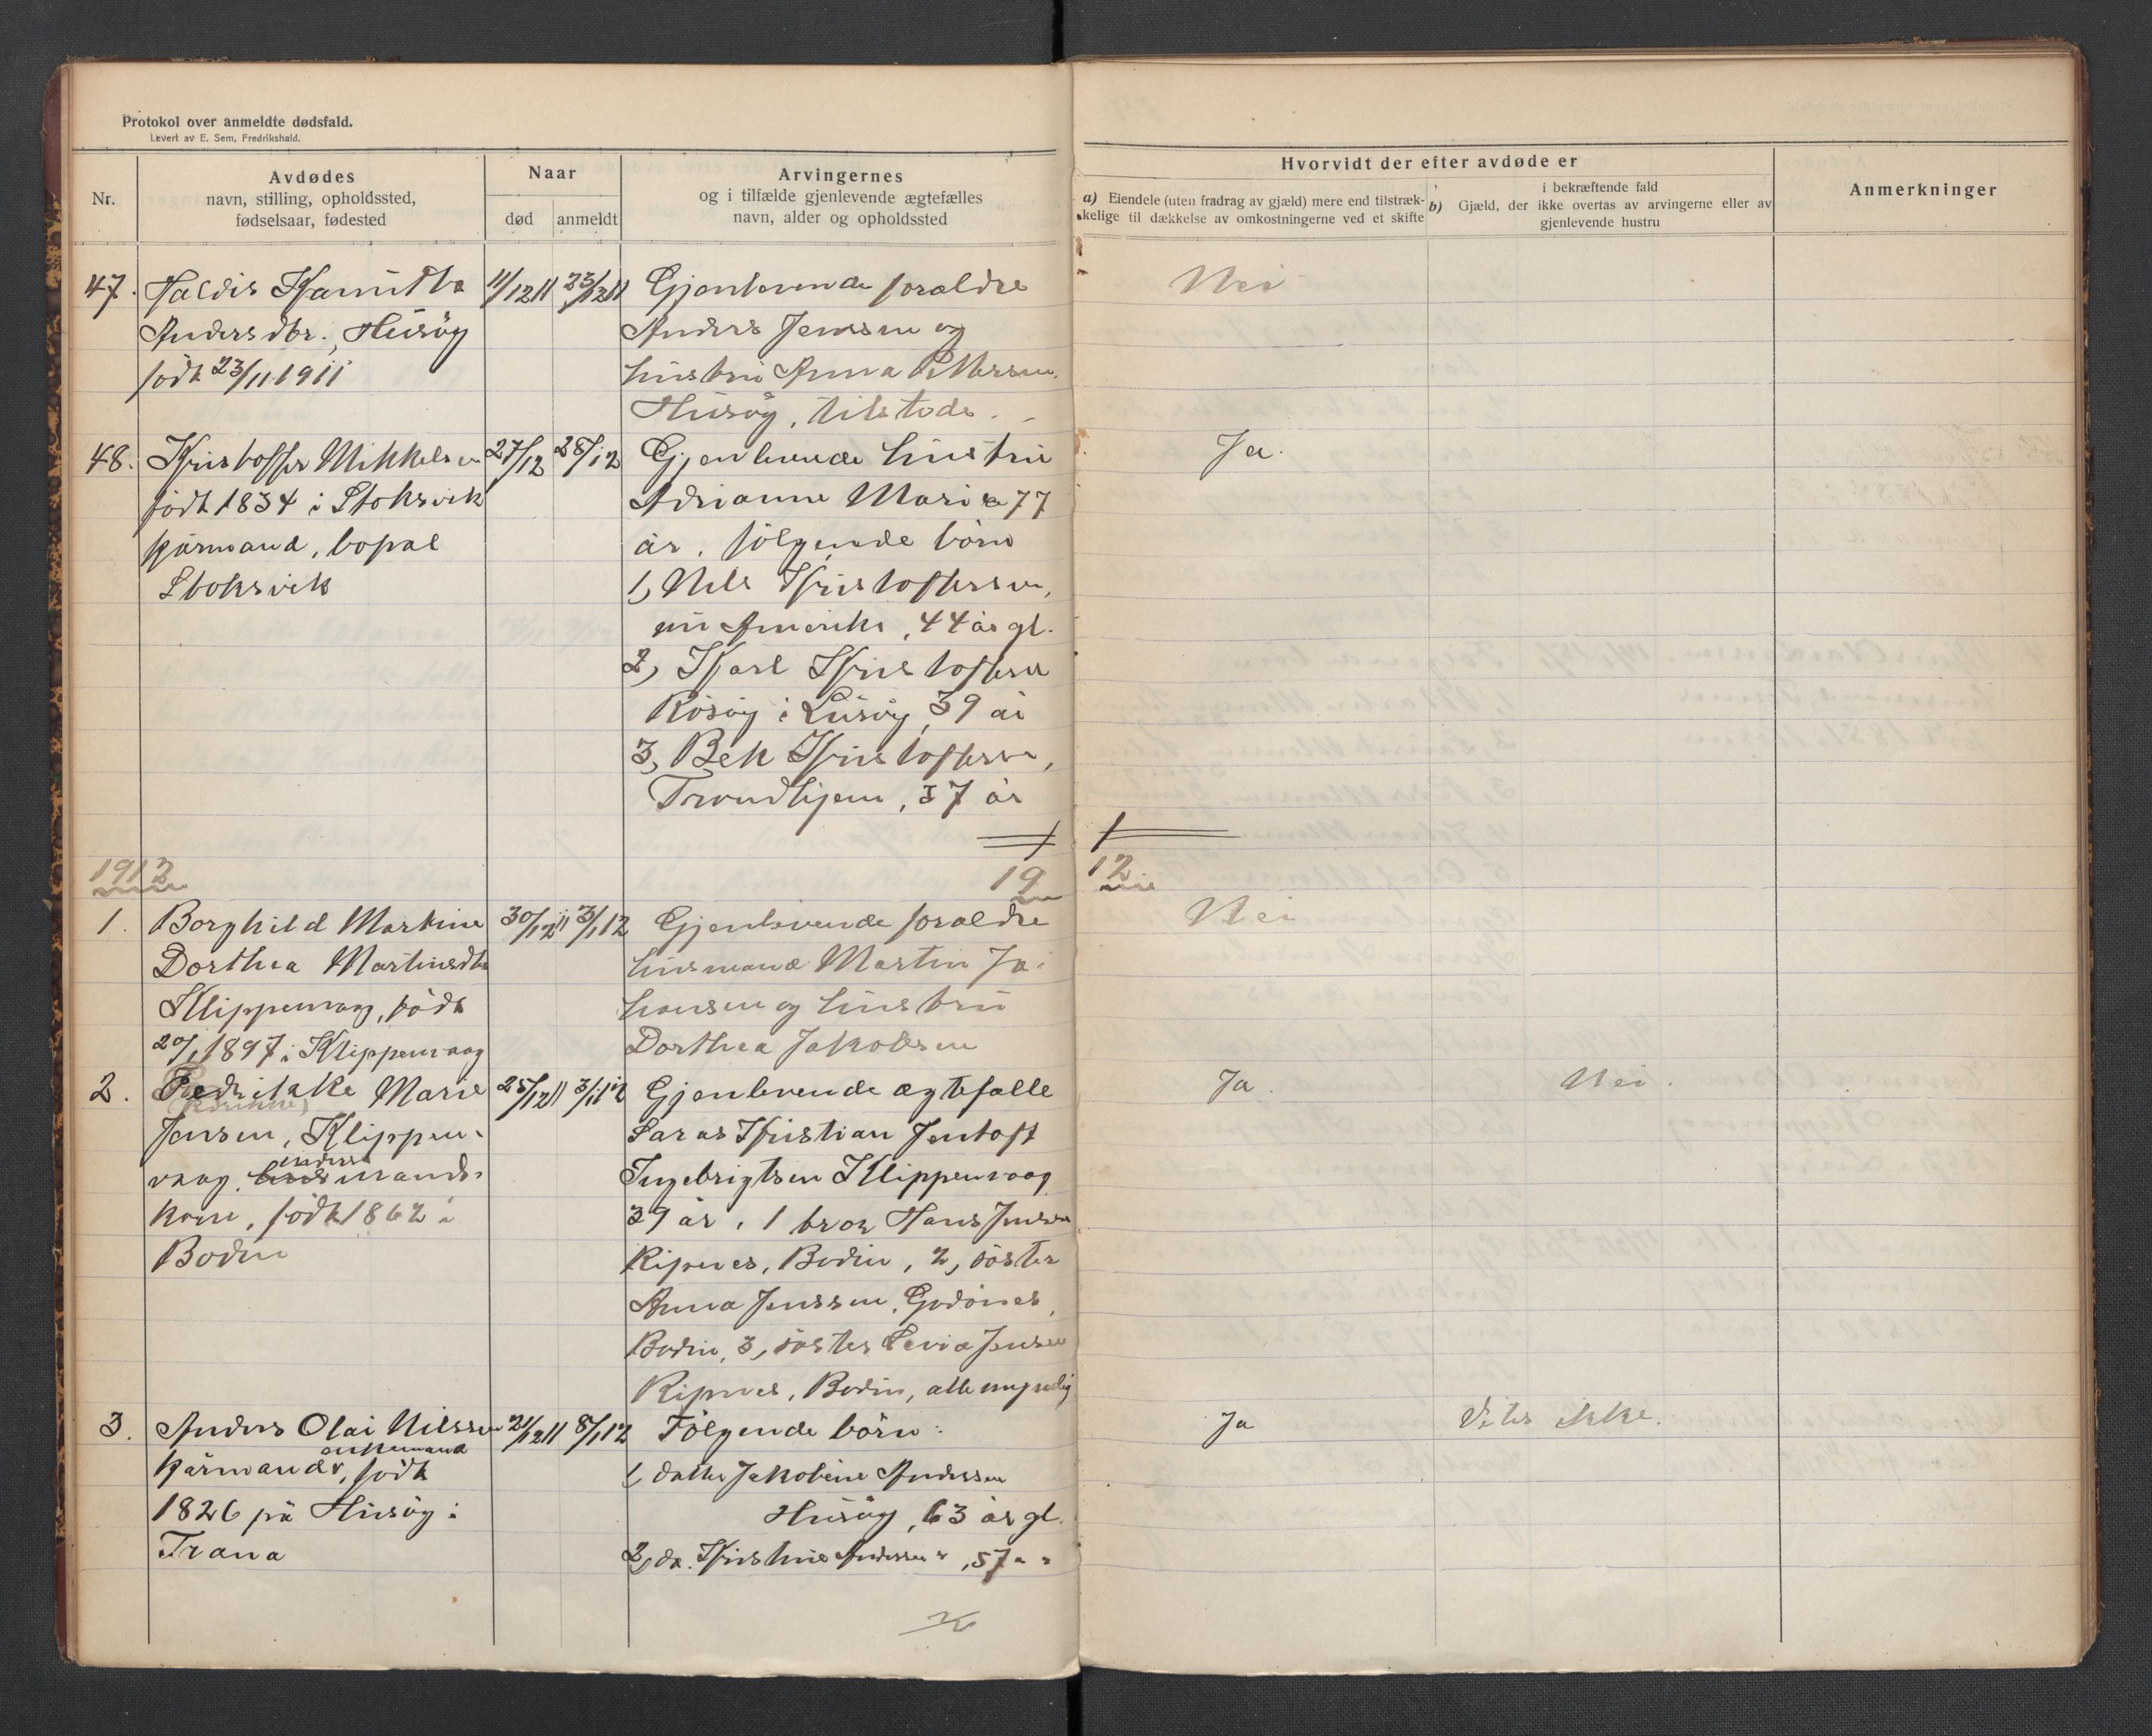 Protokol over anmeldte dødsfald.
Levert av E. Sem, Fredrikshald.
Nr.
Avdødes
navn, stilling, opholdssted,
fødselsaar, fødested
Naar
død
anmeldt
Arvingernes
og i tilfælde gjenlevende ægtefælles
navn, alder og opholdssted
Hvorvidt der efter avdøde er
a) Eiendele (uten fradrag av gjæld) mere end tilstræk-
kelige til dækkelse av omkostningerne ved et skifte
i bekræftende fald
b) Gjæld, der ikke overtas av arvingerne eller av
gjenlevende hustru
Anmerkninger
47. Haldis 11/12 11 23/12 11 Gjenlevende forældre Nei
Andersdtr., Husöy Anders Jenssen og
født 23/11 1911 hustru Anna Pettersen
Husöy, tilstede.
48. Kristoffer Mikkelsen 27/12 28/12 Gjenlevende hustru Ja.
født 1834 i Stoksvik Adrianne Marie 77
kårmand, bopæl år, følgende børn
Stoksvik 1, Nils Kristoffersen,
nu Amerika, 44 år gl.
2, Karl Kristoffersen
i Lurøy, 39 år
3, Kristoffersen,
Trondhjem, 37 år
1912 1912
1. Borghild Martine 30/12 11 3/1 12 Gjenlevende forældre Nei
Dorthea Martinsdtr husmand Martin Jo-
Klippenvaag, født hansen og hustru
20/1 1897 i Klippenvaag Dorthea Jakobsen
2. Fredrikke Marie 25/12 11 3/1 12 Gjenlevende ægtefælle Ja. Nei.
Jensen, Klippen- Kristian Jentoft
vaag, mands- Ingebrigtsen Klippenvaag
kone, født 1862 i 39 år, 1 bror Hans Jensen
Bodin Ripnes, Bodin, 2, søster
Anna Jenssen, Godönes,
Bodin, 3, søster Jensen
Ripnes, Bodin, alle myndig
3. Anders Olai Nilssen 21/12 11 8/1 12 Følgende børn: Ja Vites ikke.
enkemand
kårmand, født 1, datter Jakobine Andersen
1826 på Husöy i Husöy, 63 år gl.
Træna 2, do. Kristine Andersen ", 57 " "